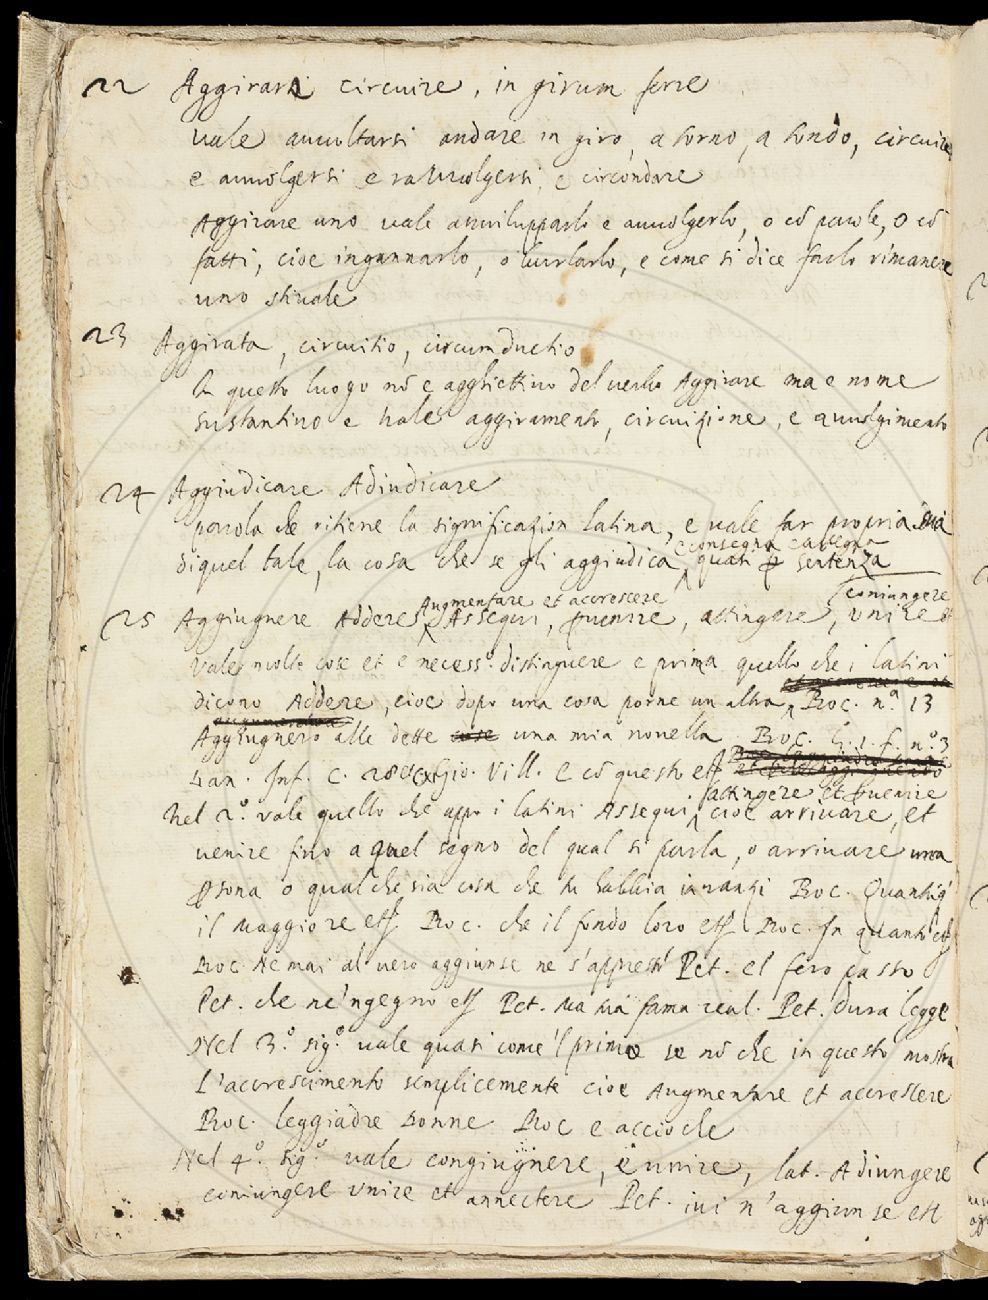 22 Aggirarsi circuire, in girum ferre
vale avvoltarsi andare in giro, a torno, a tondo, circuire
e avvolgersi e ravvolgersi, e circondare
Aggirare uno vale avvilupparlo e avvolgerlo, o cō parole, o cō
fatti, cioe ingannarlo, o burlarlo, e come si dice farlo rimanere
uno stivale
23 Aggirata, circuitio, circumductio
In questo luogo nō e agghiettivo del verbo Aggirare ma e nome
sustantivo e vale aggiramento, circuizione, e avvolgimento
24 Aggiudicare Adiudicare
parola che ritiene la significazion latina, e vale far propria sua
e consegna e assegna
di quel tale, la cosa che se gli aggiudica, quasi p sentenza
Augmentare et accrescere
coniungere
25 Aggiugnere Addere, Assequi, puenire, attingere, unire et
Vale molte cose et e necess.o distinguere e prima quello che i latini
dicono Addere, cioe dopo una cosa porne un altra, Boc. n.a 13
Aggiugnerò alle dette cose una mia novella Boc. f. n.o 3
Dan. Inf. c. 28 Gio. Vill. e cō questo
attingere et puenire
Nel 2.o vale quello che appo i latini Assequi, cioe arrivare, et
venire fino a quel segno del qual si parla, o arrivare una
psona o qual che sia cosa che si habbia inanzi Boc. Quantuq
il maggiore Boc. che il fondo loro Boc. In quanti
Boc. Ne mai al vero aggiunse ne s'appressò Pet. el fero passo
Pet. che ne'ngegno Pet. Ma sua fama real. Pet. dura legge
Nel 3.o sig.o vale quasi come 'l primo se nō che in questo mostra
l'accrescimento semplicemente cioe Augmentare et accrescere
Boc. leggiadre Donne Boc e acciò che
Nel 4.o sig.o vale congiugnere, e unire, lat. Adiungere
coniungere unire et annectere Pet. ivi n'aggiunse